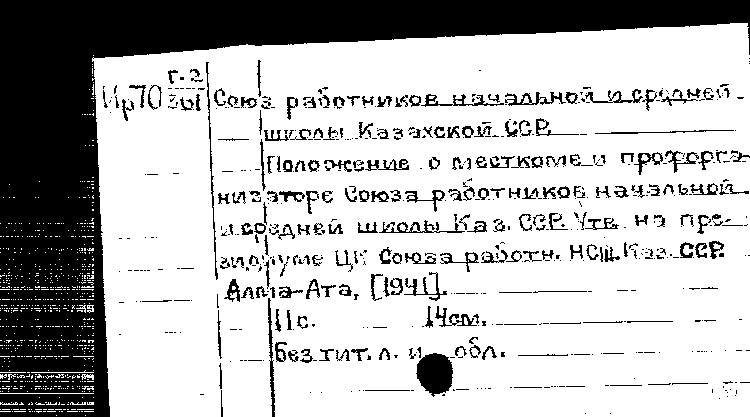 Г-2
Ир70 301 Союз работников начальной и средней
школы Казахской ССР.
Положение о месткоме и профорга-
низаторе Союза работников начальной
и средней школы Каз. ССР. Утв. на пре-
зидиуме ЦК Союза работн. НСШ Каз. ССР.
Алма-Ата, [1941].
11с. 14см.
Без тит. л. и обл.